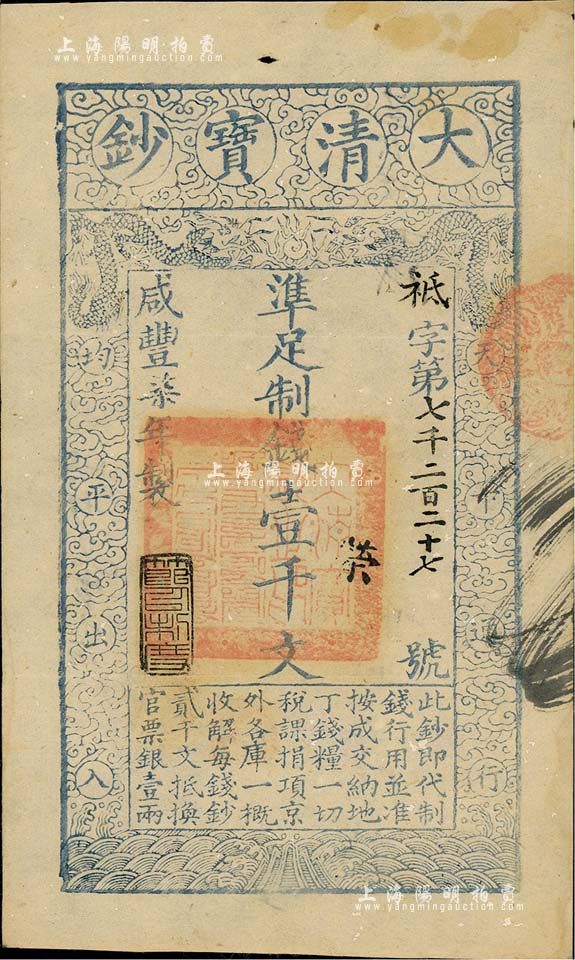 上海陽明拍賣
www.yangmingauction.com
大清寶鈔
天下通行
均平出入
祗字第七千二百二十七號
準足制錢壹千文
咸豐柒年製
上海陽明拍賣
www.yangmingauction.com
此鈔即代制
錢行用並准
按成交納地
丁錢糧一切
稅課捐項京
外各庫一概
收解每錢鈔
貳千文抵換
官票銀壹兩
上海陽明拍賣
www.yangmingauction.com